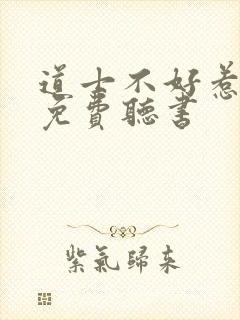 道士不好惹
免費聽書
紫氣歸來